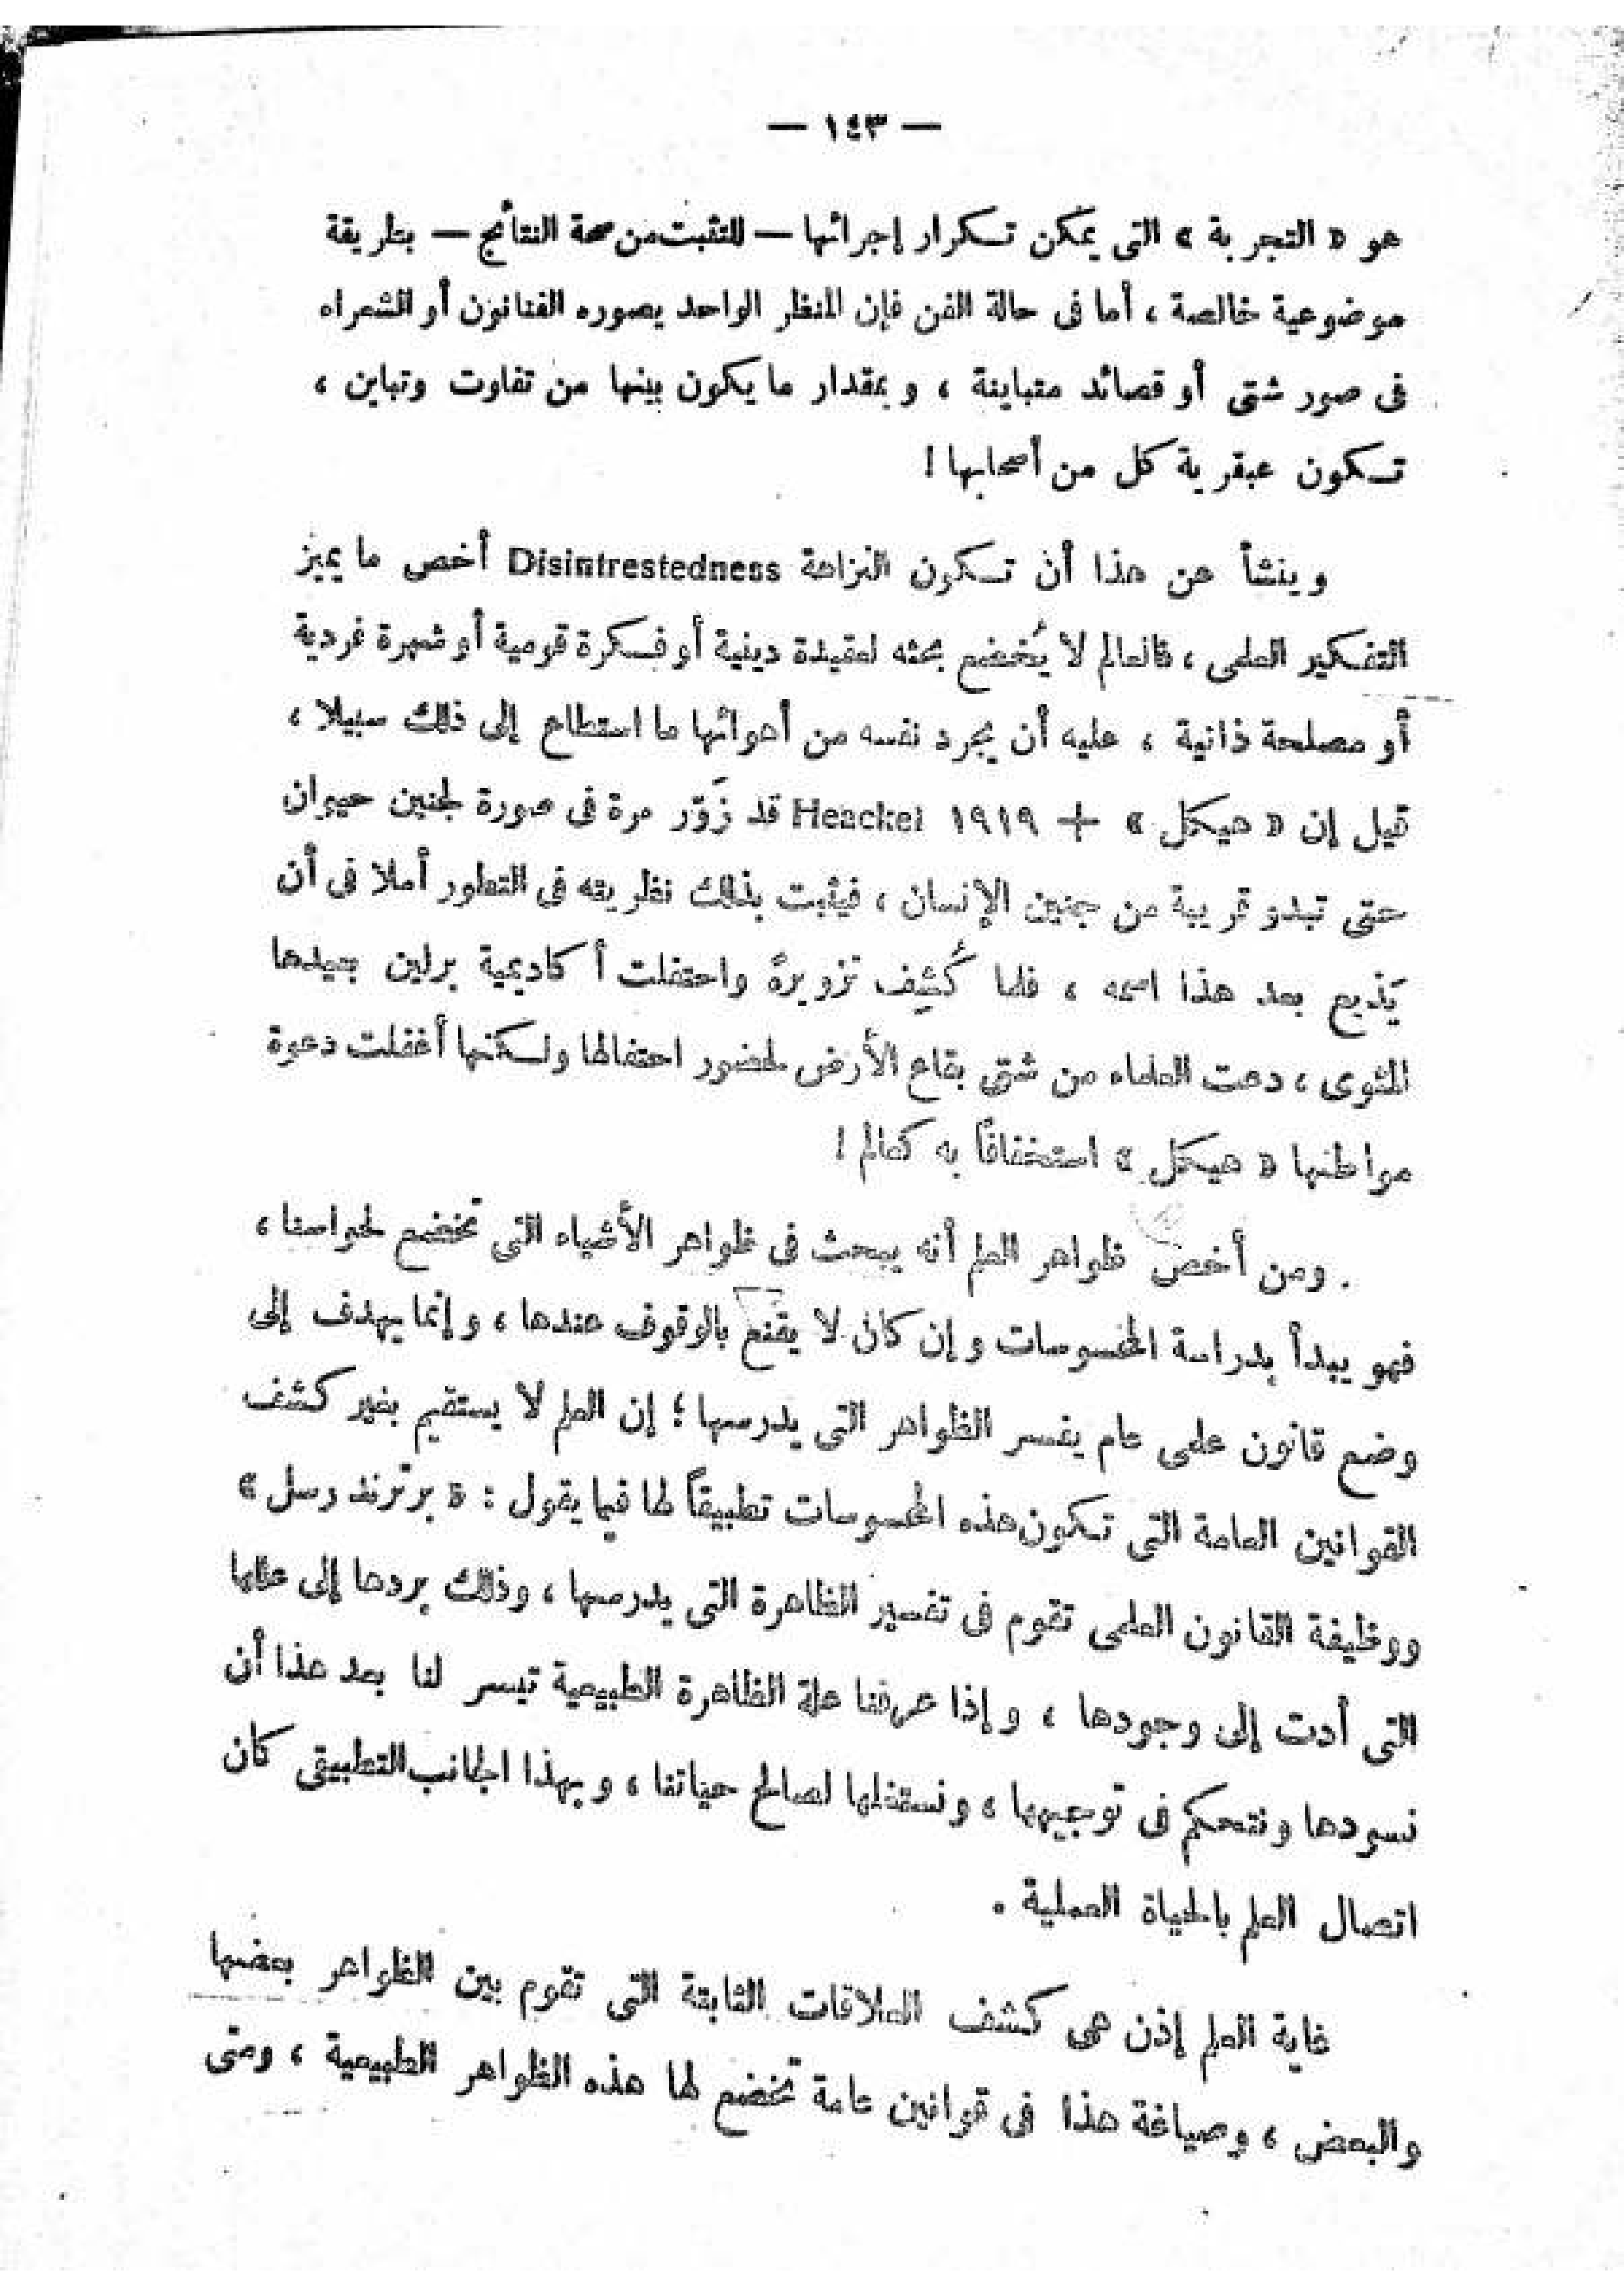 — ١٤٣ —
هو « التجربة » التى يمكن تكرار إجرائها — للتثبت من صحة النتائج — بطريقة
موضوعية خالصة ، أما فى حالة الفن فإن المنظر الواحد يصوره الفنانون أو الشعراء
فى صور شتى أو قصائد متباينة ، وبمقدار ما يكون بينها من تفاوت وتباين ،
تكون عبقرية كل من أصحابها !
وينشأ عن هذا أن تكون النزاهة Disintrestedness أخص ما يميز
التفكير العلمى ، فالعالم لا يُخضع بحثه لعقيدة دينية أو فكرة قومية أو شهرة فردية
أو مصلحة ذاتية ، عليه أن يجرد نفسه من أهوائها ما استطاع إلى ذلك سبيلا ،
قيل إن « هيكل » + ١٩١٩ Heackel قد زَوّر مرة فى صورة لجنين حيوان
حتى تبدو قريبة من جنين الإنسان ، فيثبت بذلك نظريته فى التطور أملا فى أن
يَذيع بعد هذا اسمه ، فلما كُشِف تزويرهُ واحتفلت أكاديمية برلين بعيدها
المئوى ، دعت العلماء من شتى بقاع الأرض لحضور احتفالها ولكنها أغفلت دعوة
مواطنها « هيكل » استخفافاً به كعالم !
ومن أخص ظواهر العلم أنه يبحث فى ظواهر الأشياء التى تخضع لحواسنا ،
فهو يبدأ بدراسة المحسوسات وإن كان لا يقنع بالوقوف عندها ، وإنما يهدف إلى
وضع قانون علمى عام يفسر الظواهر التى يدرسها ؛ إن العلم لا يستقيم بغير كشف
القوانين العامة التى تكون هذه المحسوسات تطبيقاً لها فيما يقول : « برترند رسل »
ووظيفة القانون العلمى تقوم فى تفسير الظاهرة التى يدرسها ، وذلك بردها إلى عللها
التى أدت إلى وجودها ، وإذا عرفنا علة الظاهرة الطبيعية تيسر لنا بعد هذا أن
نسودها ونتحكم فى توجيهها ، ونستغلها لصالح حياتنا ، وبهذا الجانب التطبيقى كان
اتصال العلم بالحياة العملية .
غاية العلم إذن هى كشف العلاقات الثابتة التى تقوم بين الظواهر بعضها
والبعض ، وصياغة هذا فى قوانين عامة تخضع لها هذه الظواهر الطبيعية ، ومتى